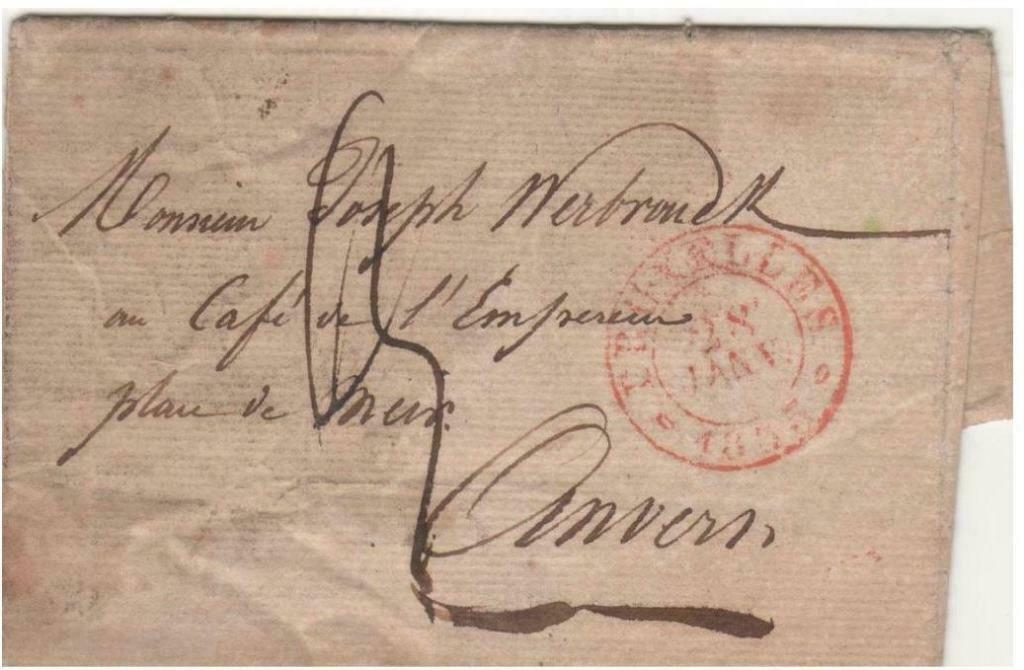 Monsieur Joseph Werbrouck
au Café de l'Empereur
place de Meir.
Anvers
BRUXELLES
JANV